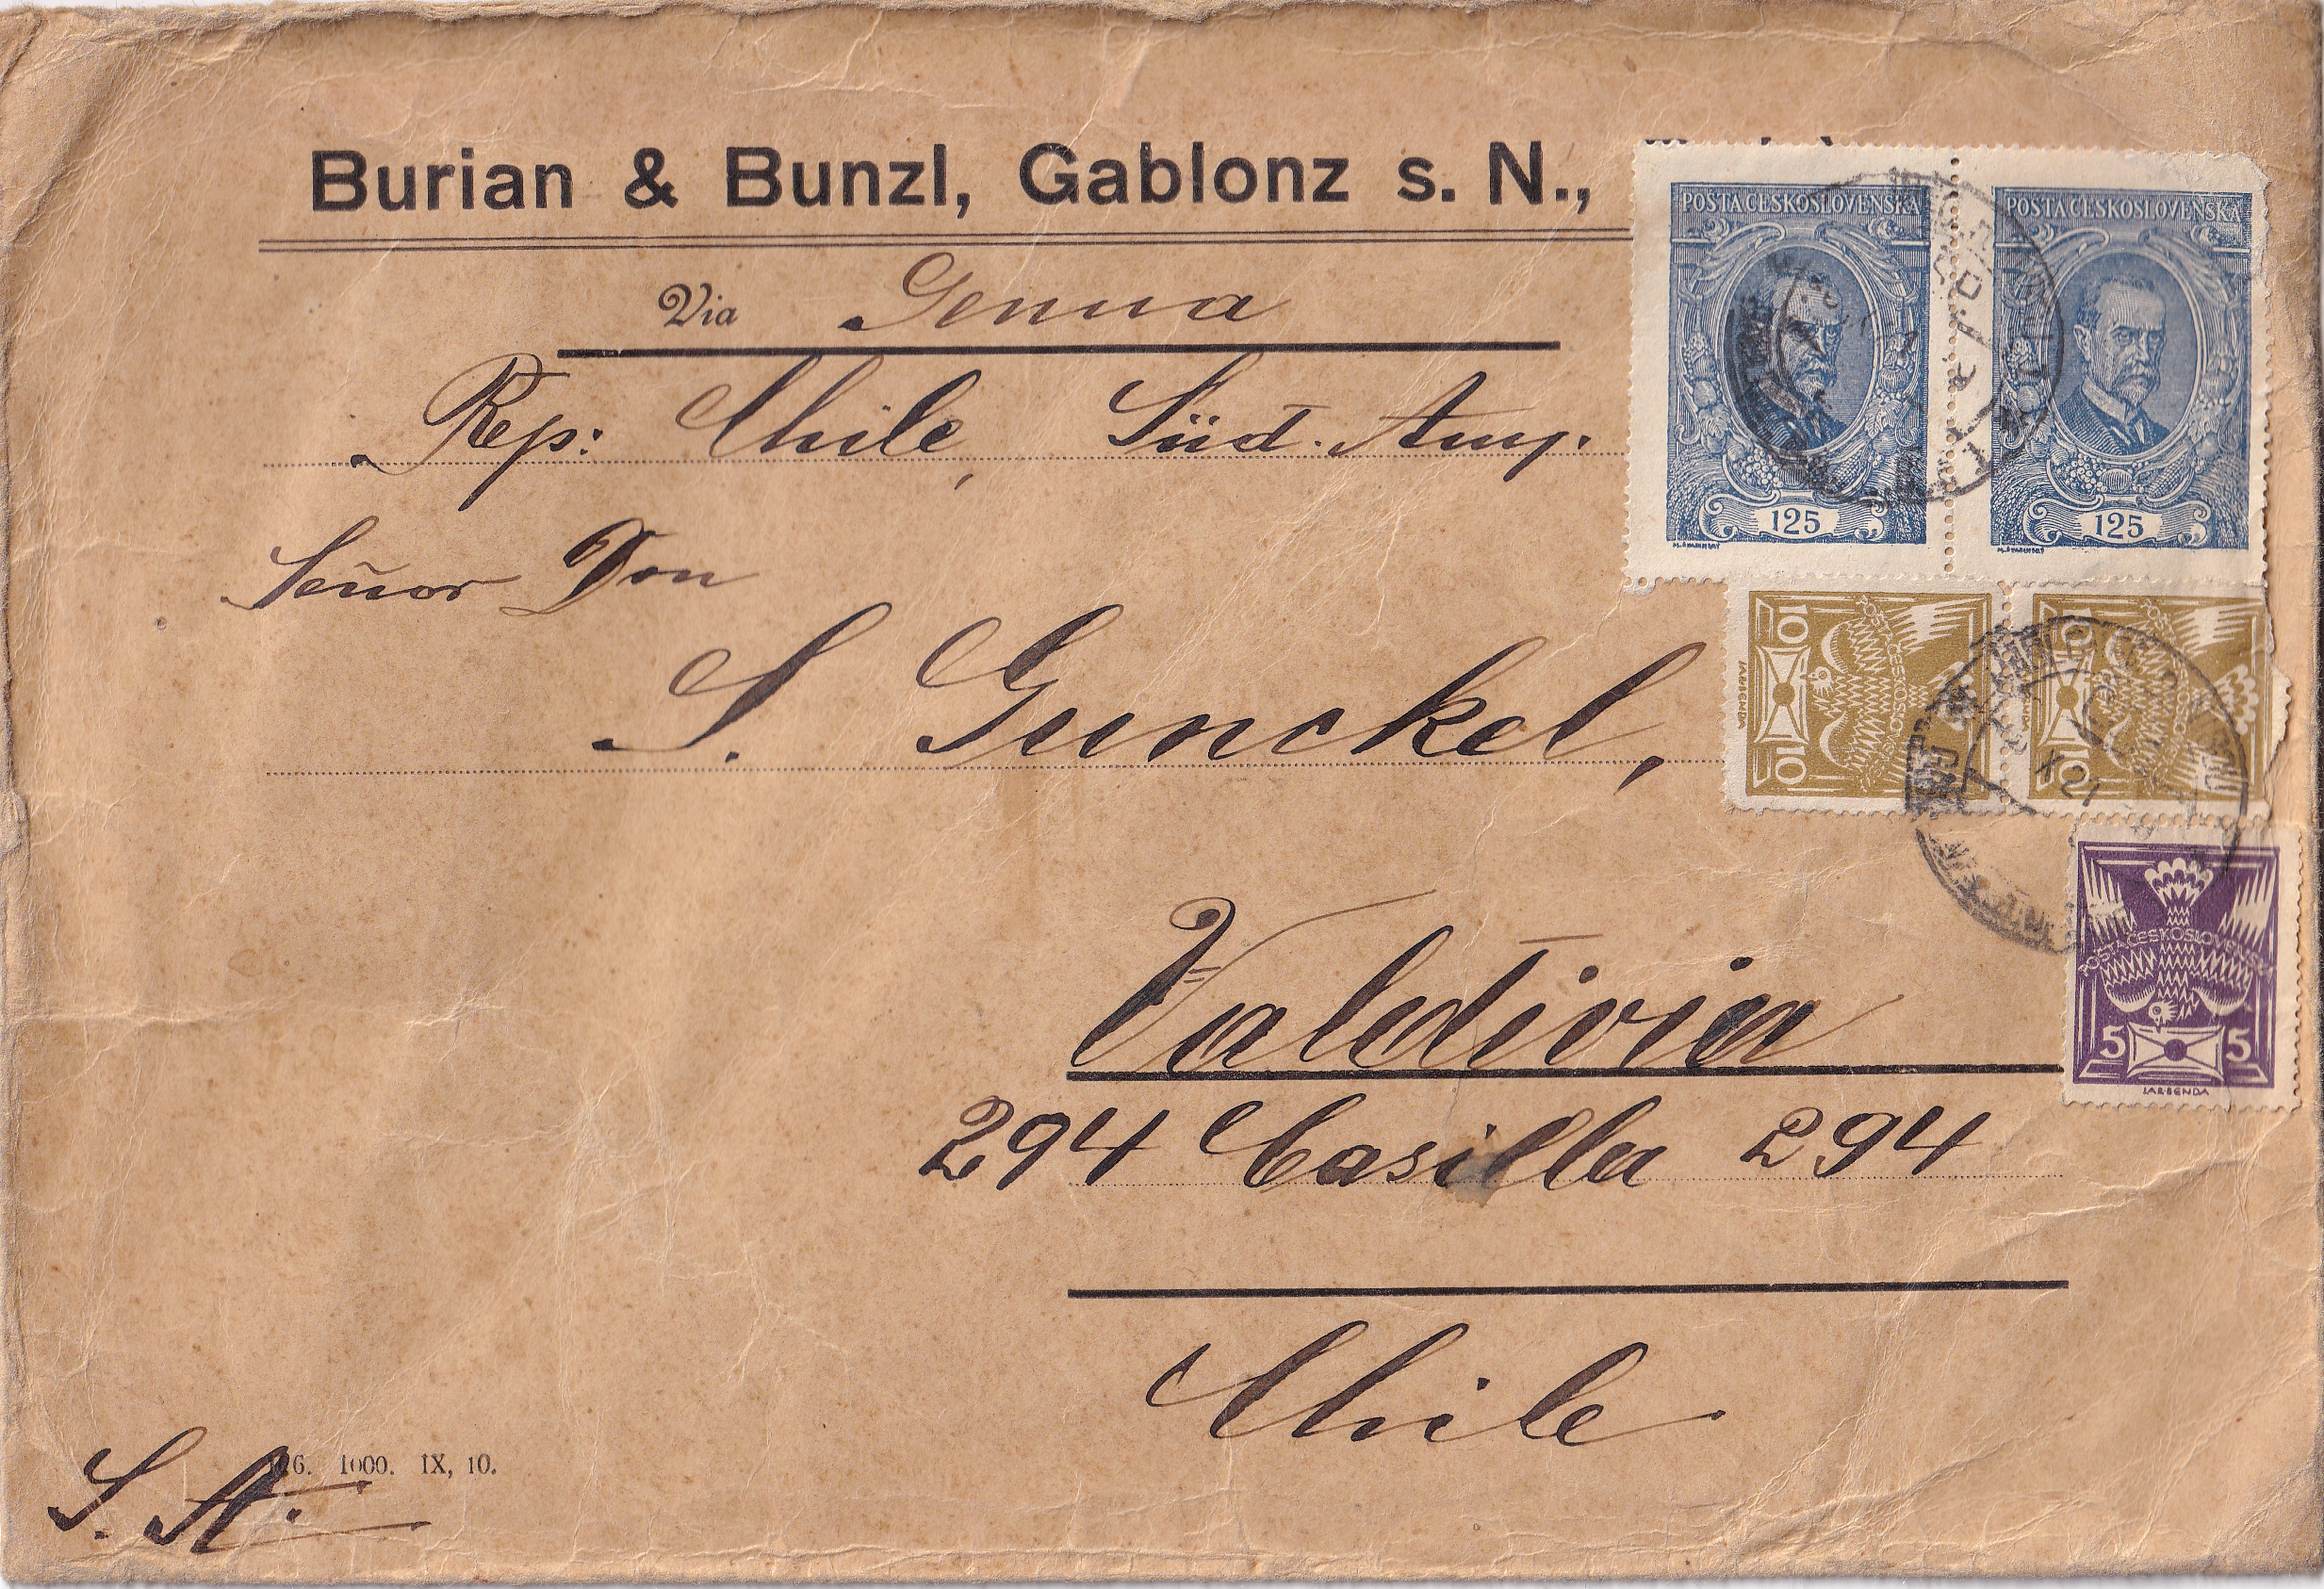 Burian & Bunzl, Gablonz s. N.,
Via Genua
Rep: Chile, Süd. Am.
Señor Don
S. Gunckel,
Valdivia
294 Casilla 294
Chile
S. A.
6. 1000. IX, 10.
POSTA CESKOSLOVENSKA
125
POSTA CESKOSLOVENSKA
125
10 10
10 10
X 21
POSTA CESKOSLOVENSKA
5 5
JAR BENDA